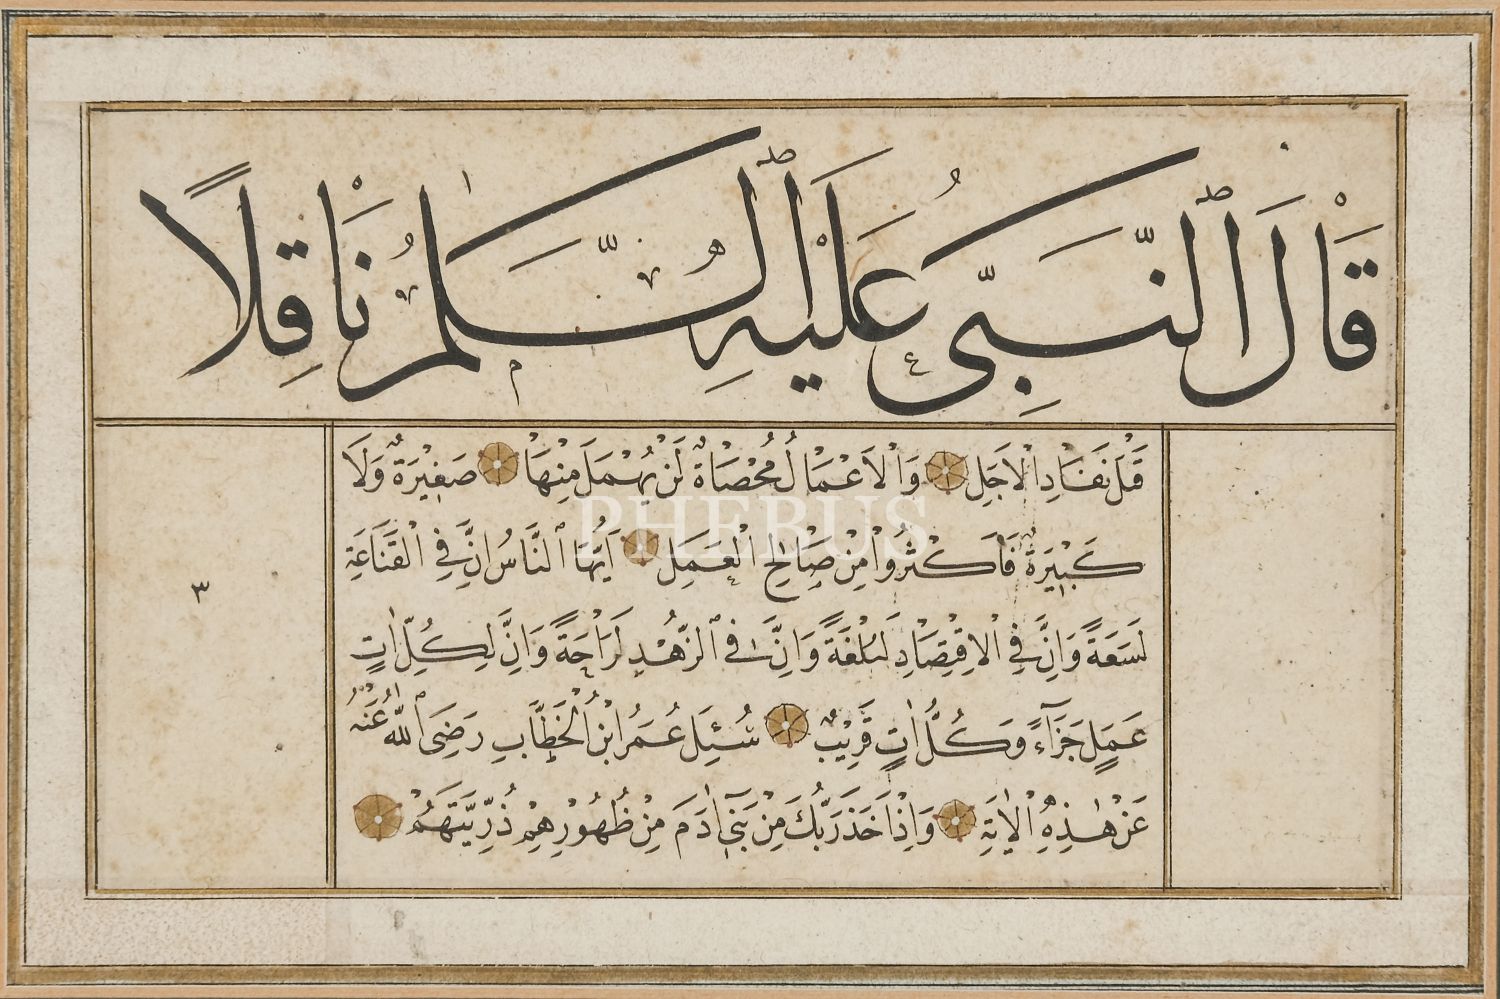 قَالَ ٱلنَّبِىُّ عَلَيْهِ ٱلسَّلٰمُ نَاقِلًا
قَبْلَ نَفَادِ الْاَجَلِ وَالْاَعْمَالُ مُحْصَاةٌ لَنْ يُهْمَلَ مِنْهَا صَغِيْرَةٌ وَلَا
كَبِيْرَةٌ فَاَكْثِرُوْا مِنْ صَالِحِ الْعَمَلِ اَيُّهَا ٱلنَّاسُ اِنَّ فِي الْقَنَاعَةِ
لَسَعَةً وَاِنَّ فِي الْاِقْتِصَادِ لَبُلْغَةً وَاِنَّ فِي ٱلزُّهْدِ لَرَاحَةً وَاِنَّ لِكُلِّ
عَمَلٍ جَزَآءً وَكُلُّ اٰتٍ قَرِيْبٌ سُئِلَ عُمَرُ ابْنُ الْخَطَّابِ رَضِىَ ٱللّٰهُ عَنْهُ
عَنْ هٰذِهِ الْاٰيَةِ وَاِذْ اَخَذَ رَبُّكَ مِنْ بَنِىٓ اٰدَمَ مِنْ ظُهُوْرِهِمْ ذُرِّيَّتَهُمْ
٣
PHEBUS